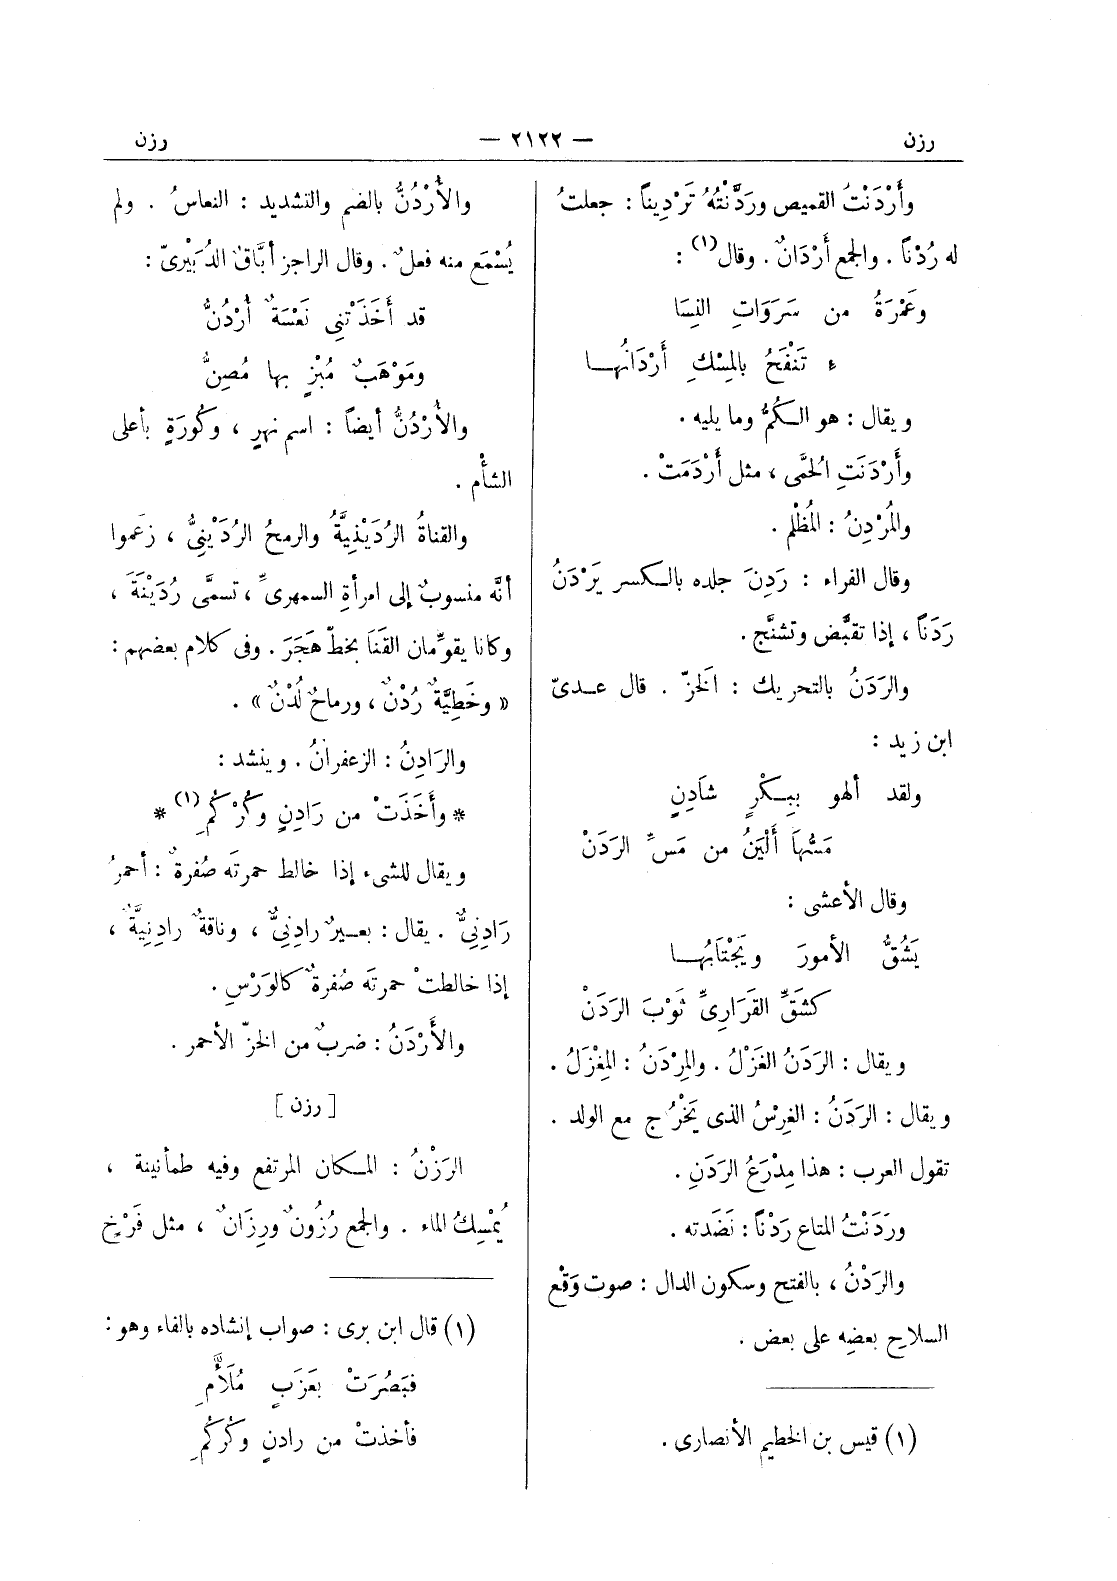 رزن — ٢١٢٢ — رزن
وأَرْدَنْتُ القميص ورَدَّنْتُهُ تَرْدِيناً : جعلتُ
له رُدْناً . والجمع أَرْدَانٌ . وقال(١) :
وعَمْرَةُ من سَرَوَاتِ النِسَا
ءِ تَنْفَحُ بالمِسْكِ أَرْدَانُها
ويقال : هو الكُمُّ وما يليه .
وأَرْدَنَتِ الحُمَّى ، مثل أَرْدَمَتْ .
والمُرْدِنُ : المُظْلم .
وقال الفراء : رَدِنَ جلده بالكسر يَرْدَنُ
رَدَناً ، إذا تقبَّض وتشنَّج .
والرَدَنُ بالتحريك : الخَزّ . قال عدىّ
ابن زيد :
ولقد ألهو بِبِكْرٍ شاَدِنٍ
مَسُّهاَ أَلْيَنُ من مَسِّ الرَدَنْ
وقال الأعشى :
يَشُقُّ الأمورَ ويَجْتَابُها
كشَقِّ القَرَارِىِّ ثَوْبَ الرَدَنْ
ويقال : الرَدَنُ الغَزْلُ . والمِرْدَنُ : المِغْزَلُ .
ويقال : الرَدَنُ : الغِرْسُ الذى يَخْرُج مع الولد .
تقول العرب : هذا مِدْرَعُ الرَدَنِ .
ورَدَنْتُ المتاع رَدْناً : نَضَدته .
والرَدْنُ ، بالفتح وسكون الدال : صوت وَقْع
السلاحِ بعضِه على بعض .
(١) قيس بن الخطيم الأنصارى .
والأُرْدُنُّ بالضم والتشديد : النعاسُ . ولم
يُسْمَع منه فعلٌ . وقال الراجز أبَّاقٌ الدُبَيْرىّ :
قد أَخَذَتْنِى نَعْسَةٌ أُرْدُنُّ
ومَوْهَبٌ مُبْزٍ بها مُصِنُّ
والأُرْدُنُّ أيضاً : اسم نهرٍ ، وكُورَةٍ بأعلى
الشأْم .
والقناةُ الرُدَيْنِيَّةُ والرمحُ الرُدَيْنِىُّ ، زعموا
أنَّه منسوبٌ إلى امرأةِ السمهرىِّ ، تسمَّى رُدَيْنَةَ ،
وكانا يقوِّمان القَنَا بخطّ هَجَرَ . وفى كلام بعضهم :
« وخَطِيَّةٌ رُدْنٌ ، ورماحٌ لُدْنٌ » .
والرَادِنُ : الزعفرانُ . وينشد :
* وأَخَذَتْ من رَادِنٍ وكُرْكُمِ(١) *
ويقال للشىء إذا خالط حمرتَه صُفرةٌ : أحمرُ
رَادِنِىٌّ . يقال : بعيرٌ رادِنِىٌّ ، وناقةٌ رادِنِيَّةٌ ،
إذا خالطتْ حمرتَه صُفرةٌ كالوَرْسِ .
والأَرْدَنُ : ضربٌ من الخزّ الأحمر .
[ رزن ]
الرَزْنُ : المكان المرتفع وفيه طمأنينة ،
يُمْسِكُ الماء . والجمع رُزُونٌ ورِزَانٌ ، مثل فَرْخٍ
(١) قال ابن برى : صواب إنشاده بالفاء وهو :
فبَصُرَتْ بعَزَبٍ مُلَأَّمِ
فأخذتْ من رادنٍ وكُرْكُمِ